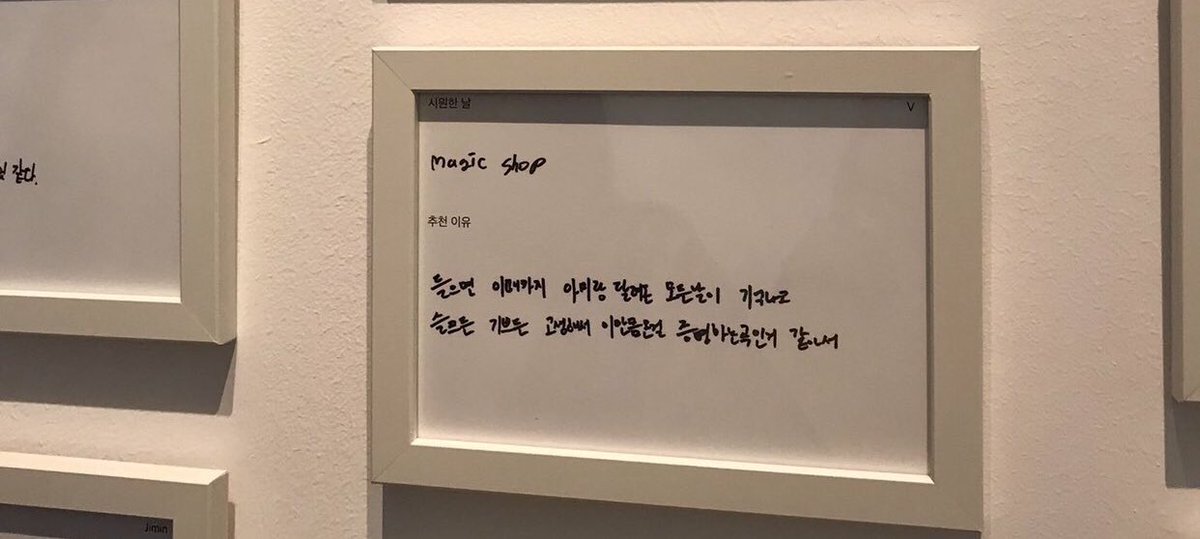 같다.
시원한 날 V
Magic Shop
추천 이유
들으면 이때까지 아미랑 달려온 모든날이 기억나고
슬프든 기쁘든 고생해서 이만큼온걸 증명하는곡인거 같아서
Jimin